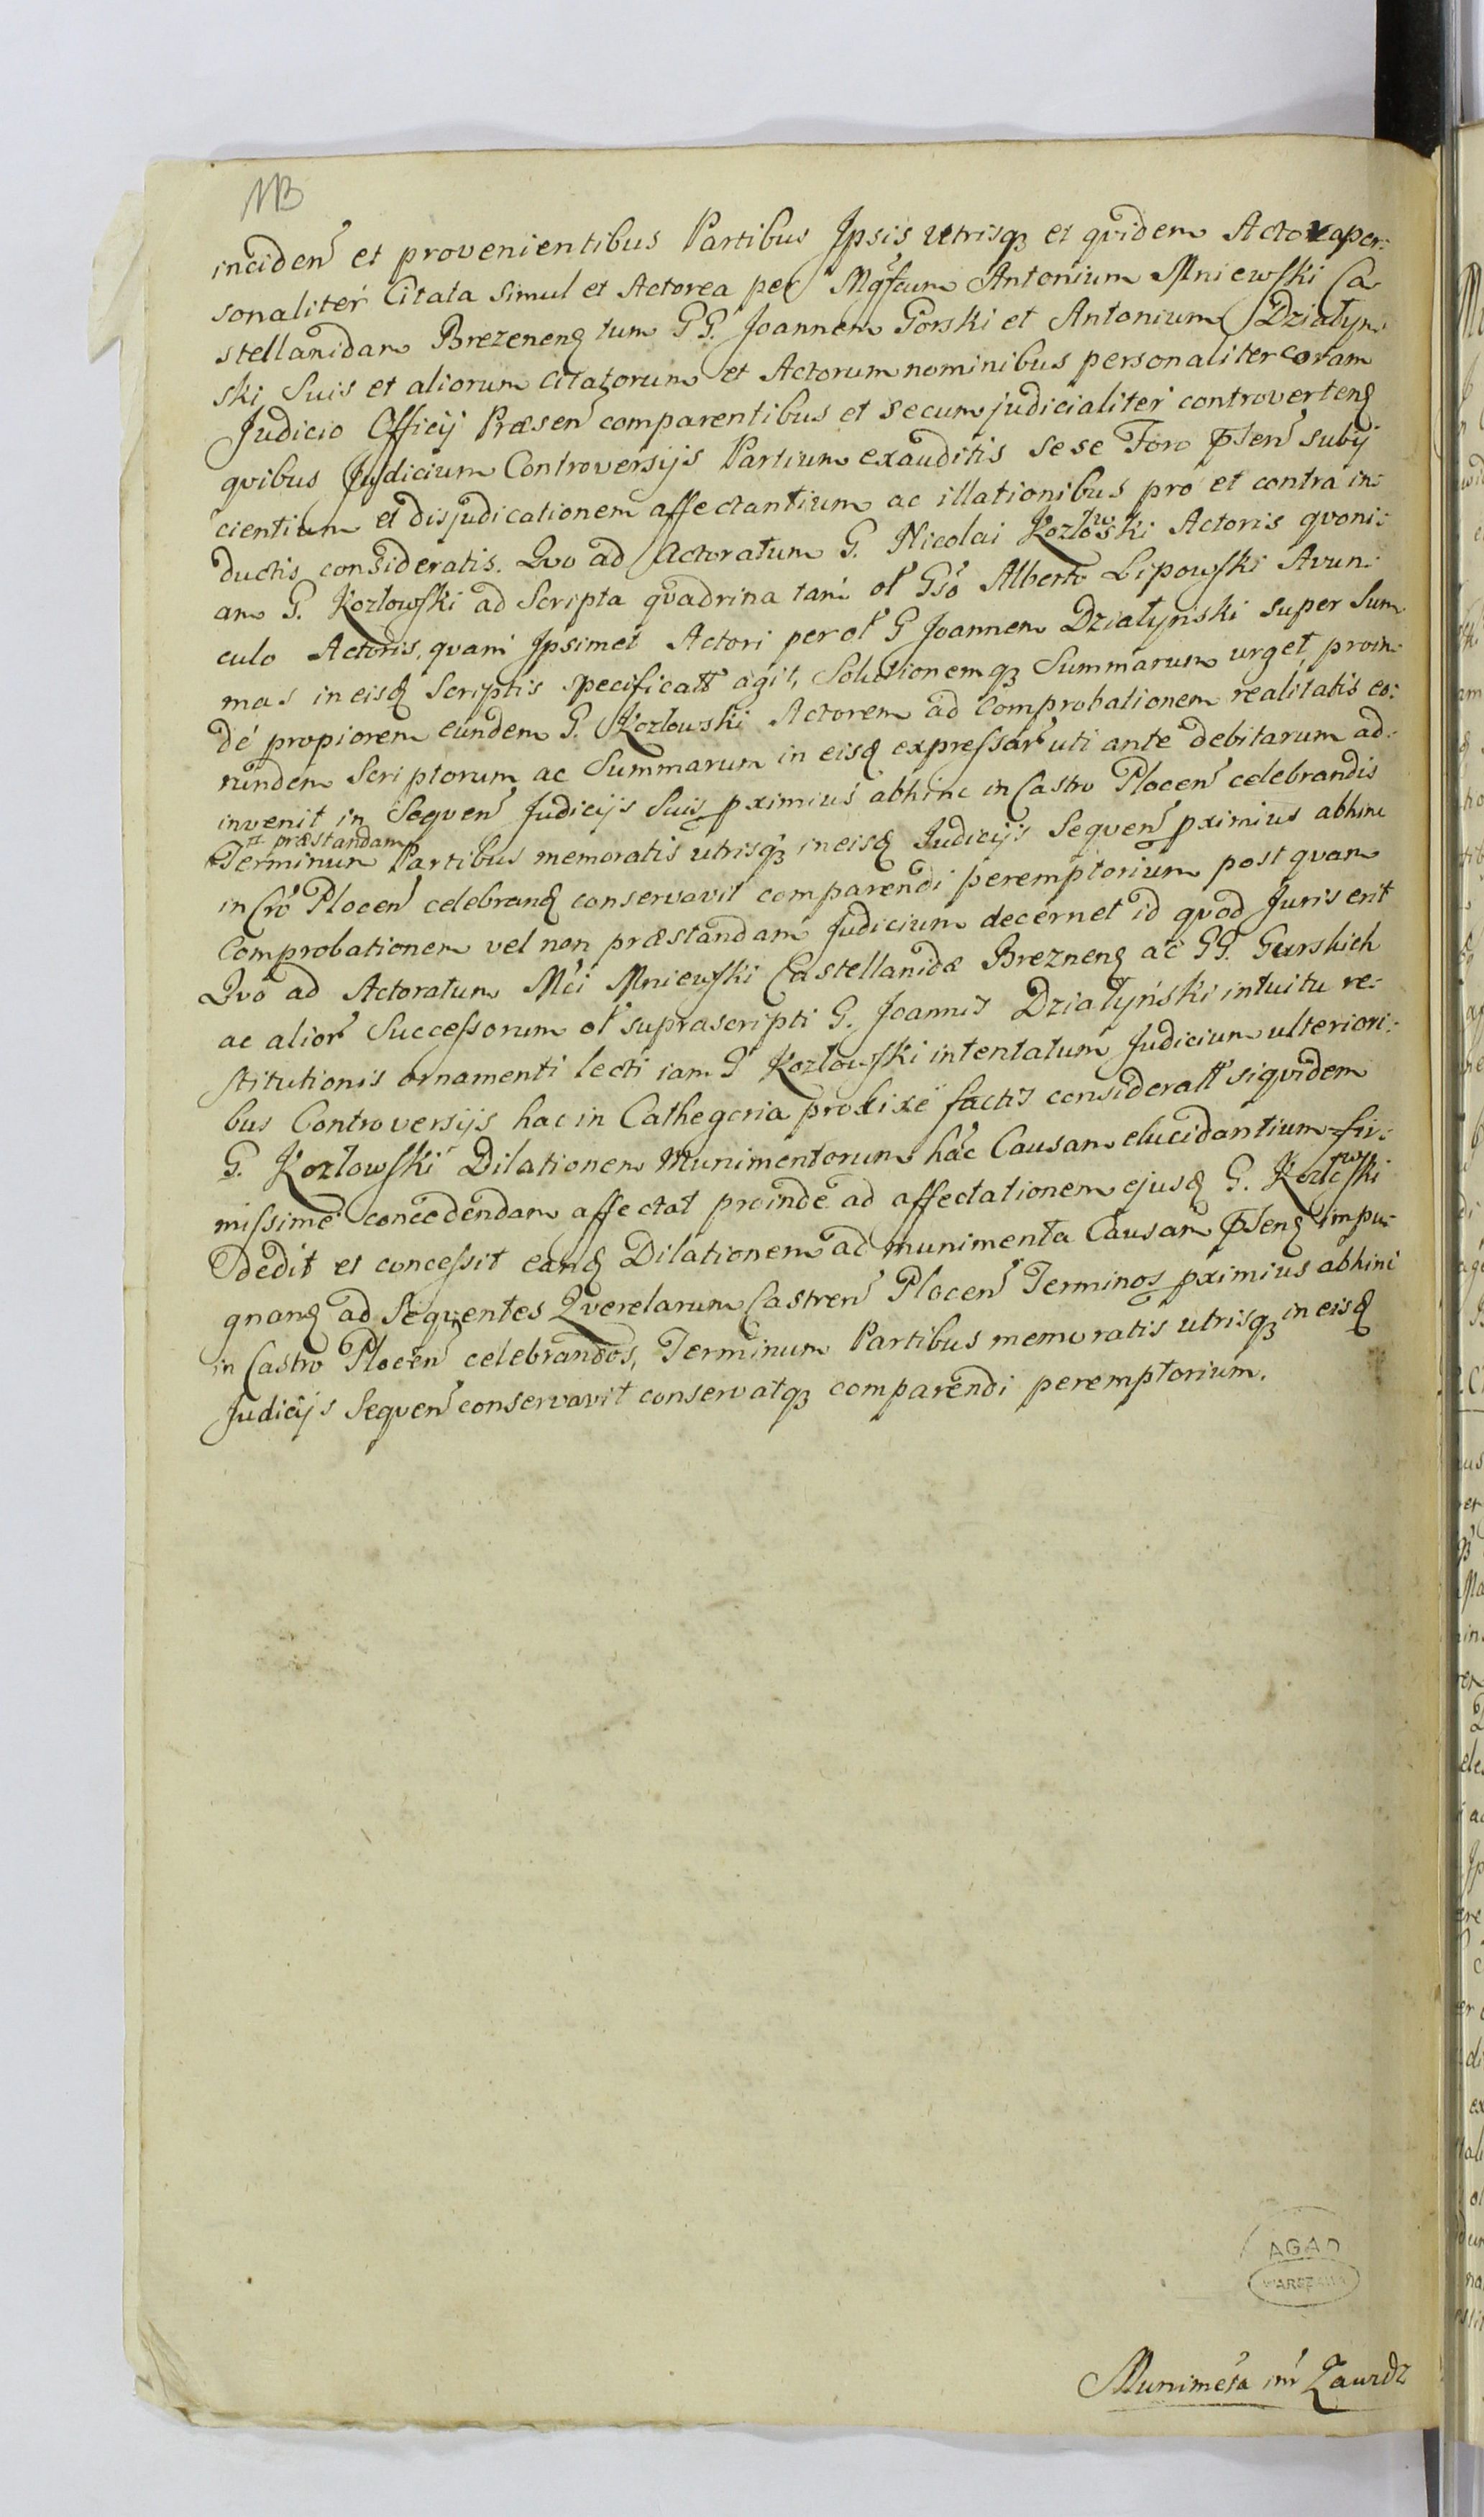 NB
inciden̄ et provenientibus Partibus Ipsis utrisqꝫ et qvidem Actorea per:
sonaliter Citata simul et Actorea per Mgfcum Antonium Mniewski Ca
stellanidam Brezenenꝫ tum GG. Joannem Gorski et Antonium Działyn
ski Suis et aliorum citatorum et Actorum nominibus personaliter coram
Judicio Officij Præsen̄ comparentibus et secum judicialiter controvertenꝫ
qvibus Judicium Controversijs Partium exauditis sese Foro p̄sen̄ subij
cientium et disjudicationem affectantium ac illationibus pro et contra in:
ductis consideratis. Qvo ad Actoratum G. Nicolai Kozlowski Actoris qvoni:
am G. Kozlowski ad Scripta qvadrina tam ol̄ Gso Alberto Lipowski Avun:
culo Actoris, qvam Ipsimet Actori per ol̄ G Joannem Działyński super Sum
mas in eisꝫ Scriptis specificatt agit, Solutionemqꝫ Summarum urget, proin:
de propiorem eundem G. Kozlowski Actorem ad comprobationem realitatis eo:
rundem Scriptorum ac Summarum in eisꝫ expressar̄ uti ante debitarum ad:
invenit in Seqven̄ Judicijs Suis pximius abhinc in Castro Plocen̄ celebrandis
præstandam
Terminum Partibus memoratis utrisqꝫ in eisꝫ Judicijs Seqven̄ pximius abhinc
in Cro Plocen̄ celebranꝫ conservavit comparendi peremptorium post qvam
Comprobationem vel non præstandam Judicium decernet id qvod Juris erit
Qvo ad Actoratum Mci Mniewski Castellanidæ Breznenꝫ ac GG. Gurskich
ac alior̄ Successorum ol̄ suprascripti G. Joannis Działyński intuitu re:
stitutionis ornamenti lecti iam G Kozlowski intentatum Judicium ulteriori:
bus Controversijs hac in Cathegoria prolixe factis consideratt siqvidem
G. Kozlowski Dilationem Munimentorum hac Causam elucidantium fir:
missime concedendam affectat proinde ad affectationem ejusꝫ G. Kozlowski
dedit et concessit eanꝫ Dilationem ad munimenta Causam p̄senꝫ impu
gnanꝫ ad Seqventes Qverelarum Castren̄ Plocen̄ Terminos pximius abhinc
in Castro Plocen̄ celebrandos, Terminum Partibus memoratis utrisqꝫ in eisꝫ
Judicijs Seqven̄ conservavit conservatqꝫ comparendi peremptorium.
AGAD
WARSZAWA
Munimēta